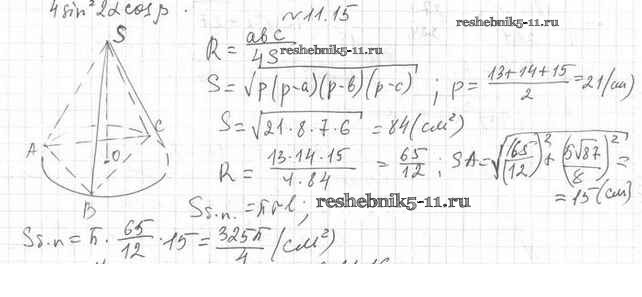 4sin²2αcosβ.
№11.15
reshebnik5-11.ru
S
A
B
C
O
R = abc / 4S
reshebnik5-11.ru
S = √p(p-a)(p-b)(p-c) ; p = (13+14+15) / 2 = 21 (см)
S = √21·8·7·6 = 84 (см²)
R = 13·14·15 / 4·84 = 65/12 ; SA = √(65/12)² + (5√87/8)² =
= 15 (см)
Sб.п. = πrl; reshebnik5-11.ru
Sб.п = π · 65/12 · 15 = 325π/4 (см²)